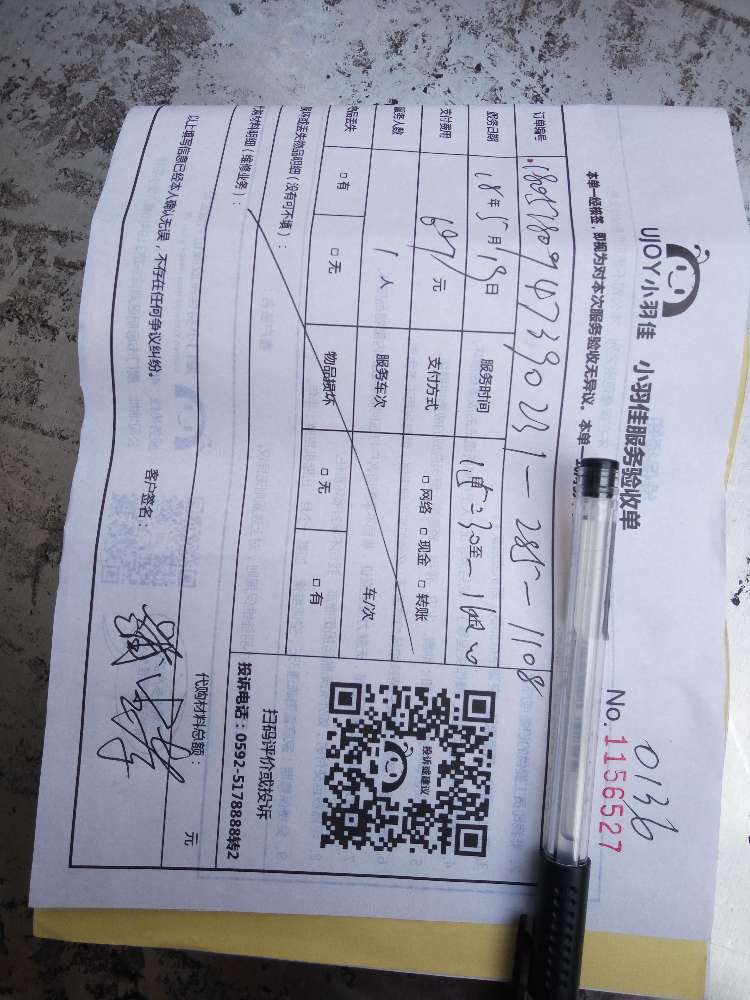 UJOY小羽佳 小羽佳服务验收单
No.1156527
0136
本单一经横签，即视为对本次服务验收无异议。本单一
订单编号
服务日期 18年5月19日 服务时间
支付费用 元 支付方式 □ 网络 □ 现金 □ 转账
服务人数 1 人 服务车次 车/次
物品丢失 □ 有 □ 无 物品损坏 □ 无 □ 有
损坏或丢失物品明细（没有可不填）：
材料明细（维修业务）：
代购材料总额： 元
以上填写信息已经本人确认无误，不存在任何争议纠纷。 客户签名：
投诉或建议
扫码评价或投诉
投诉电话：0592-5178888转2